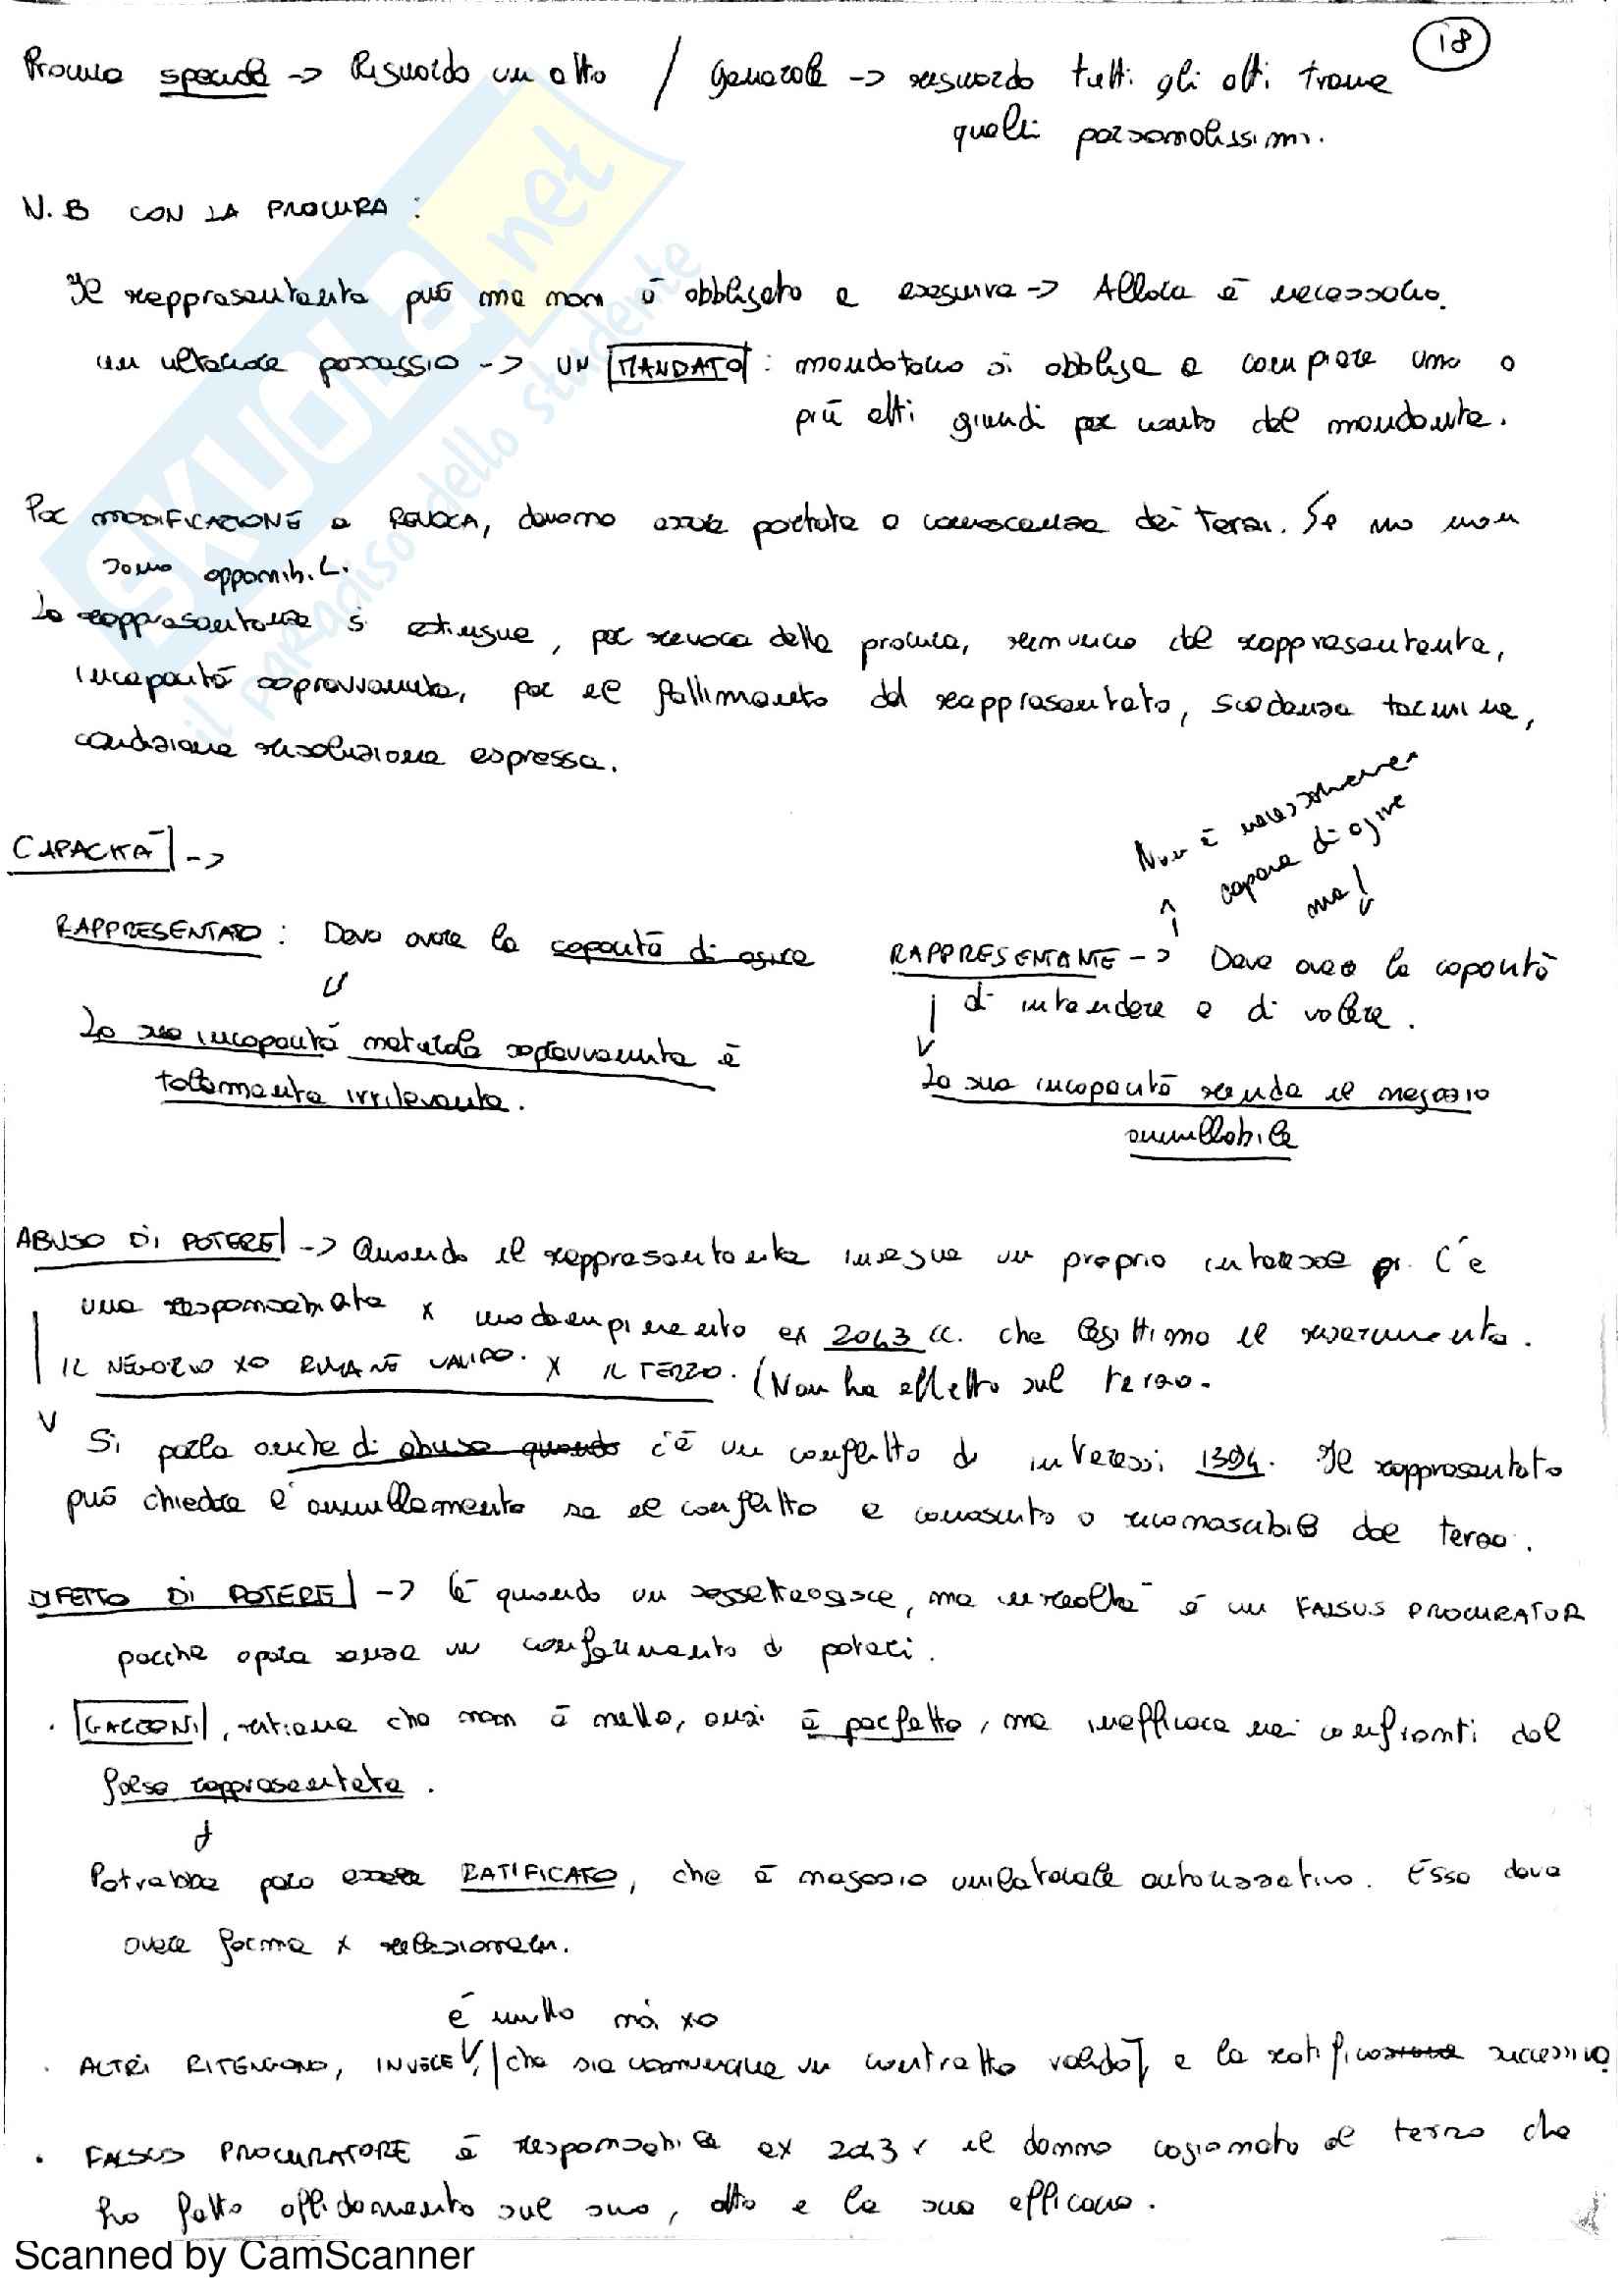 18
Procura speciale -> Riguarda un atto / Generale -> riguarda tutti gli atti tranne
quelli personalissimi.
N.B CON LA PROCURA :
Il rappresentante può ma non è obbligato a eseguire -> Allora è necessario
un ulteriore passaggio -> UN MANDATO : mandatario si obbliga a compiere uno o
più atti giuridici per conto del mandante.
Per MODIFICAZIONE e REVOCA, devono essere portate a conoscenza dei terzi. Se no non
sono opponibili.
La rappresentanza si estingue, per revoca della procura, rinuncia del rappresentante,
incapacità sopravvenuta, per il fallimento del rappresentato, scadenza termine,
condizione risoluzione espressa.
Non è necessariamente
capace di agire
ma!
CAPACITÀ ->
RAPPRESENTATO : Deve avere la capacità di agire
RAPPRESENTANTE -> Deve avere la capacità
di intendere e di volere.
La sua incapacità naturale sopravvenuta è
totalmente irrilevante.
La sua incapacità rende il negozio
annullabile
ABUSO DI POTERE -> Quando il rappresentante insegue un proprio interesse C'è
una responsabilità x inadempimento ex 2043 cc. che legittima il risarcimento.
IL NEGOZIO XO RIMANE VALIDO. X IL TERZO. (Non ha effetto sul terzo.
Si parla anche di abuso quando c'è un conflitto di interessi 1394. Il rappresentato
può chiedere l'annullamento se il conflitto è conosciuto o riconoscibile dal terzo.
DIFETTO DI POTERE -> C'è quando un soggetto agisce, ma in realtà è un FALSUS PROCURATOR
perché opera senza un conferimento di poteri.
. GAZZONI, ritiene che non è nullo, anzi è perfetto, ma inefficace nei confronti del
falso rappresentato.
Potrebbe però essere RATIFICATO, che è negozio unilaterale autorizzativo. Esso deve
avere forma x relazionem.
è nullo ma xo
. ALTRI RITENGONO, INVECE, che sia comunque un contratto valido, e la ratificazione successiva
. FALSUS PROCURATORE è responsabile ex 2043 x il danno cagionato al terzo che
ha fatto affidamento sul suo, atto e la sua efficacia.
SKUOLA.net
il paradiso dello studente
Scanned by CamScanner